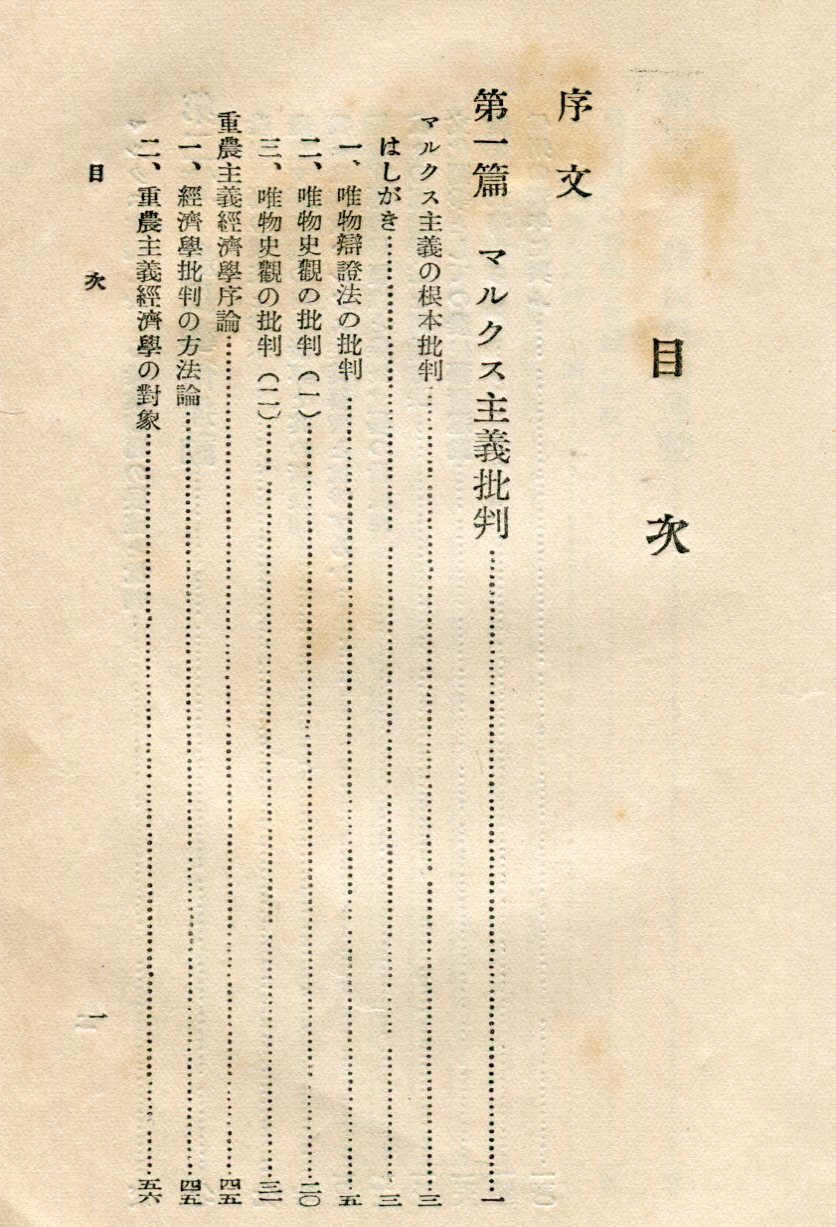 目次
序文
第一篇 マルクス主義批判……一
マルクス主義の根本批判……三
はしがき……三
一、唯物辯證法の批判……五
二、唯物史觀の批判(一)……二〇
三、唯物史觀の批判(二)……三一
重農主義經濟學序論……四五
一、經濟學批判の方法論……四五
二、重農主義經濟學の對象……五六
目次 一